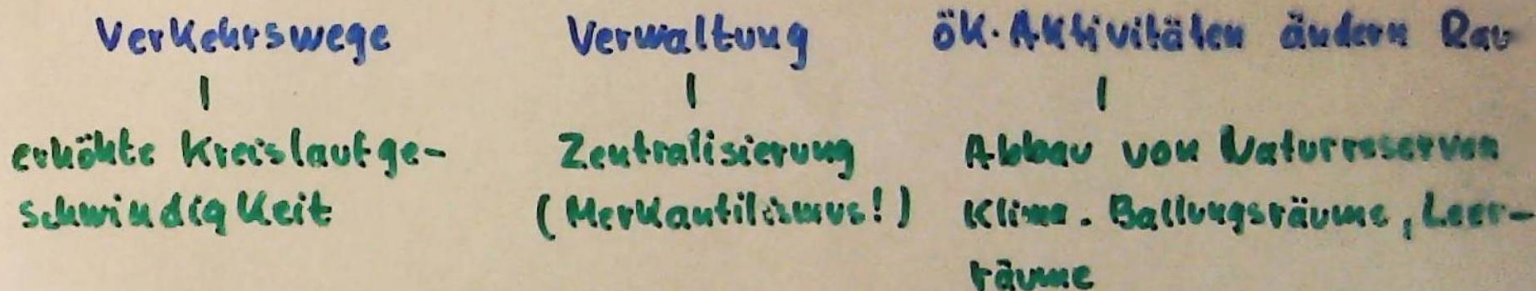 Verkehrswege
erhöhte Kreislaufge-
schwindigkeit
Verwaltung
Zentralisierung
(Merkantilismus!)
ök. Aktivitäten ändern
Abbau von Naturreserven
Klima. Ballungsräume, Leer-
räume